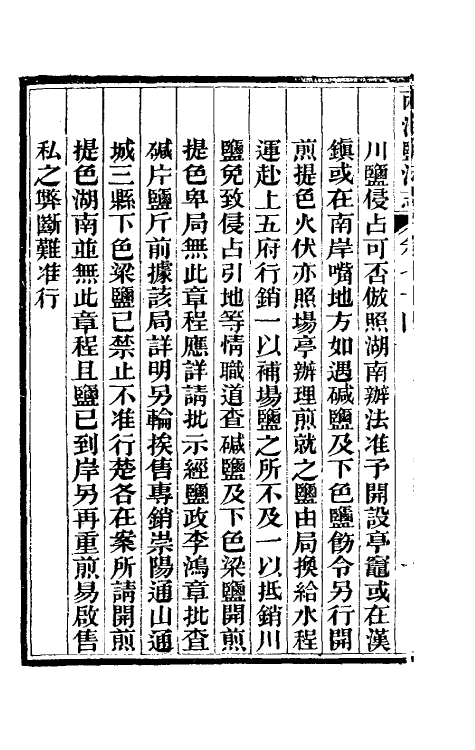 川鹽侵占可否倣照湖南辦法准予開設亭竈或在漢
鎮或在南岸嘴地方如遇碱鹽及下色鹽飭令另行開
煎提色火伏亦照場亭辦理煎就之鹽由局換給水程
運赴上五府行銷一以補場鹽之所不及一以抵銷川
鹽免致侵占引地等情職道查碱鹽及下色梁鹽開煎
提色卑局無此章程應詳請批示經鹽政李鴻章批查
碱片鹽斤前據該局詳明另輪挨售專銷崇陽通山通
城三縣下色梁鹽已禁止不准行楚各在案所請開煎
提色湖南並無此章程且鹽已到岸另再重煎易啟售
私之弊斷難准行